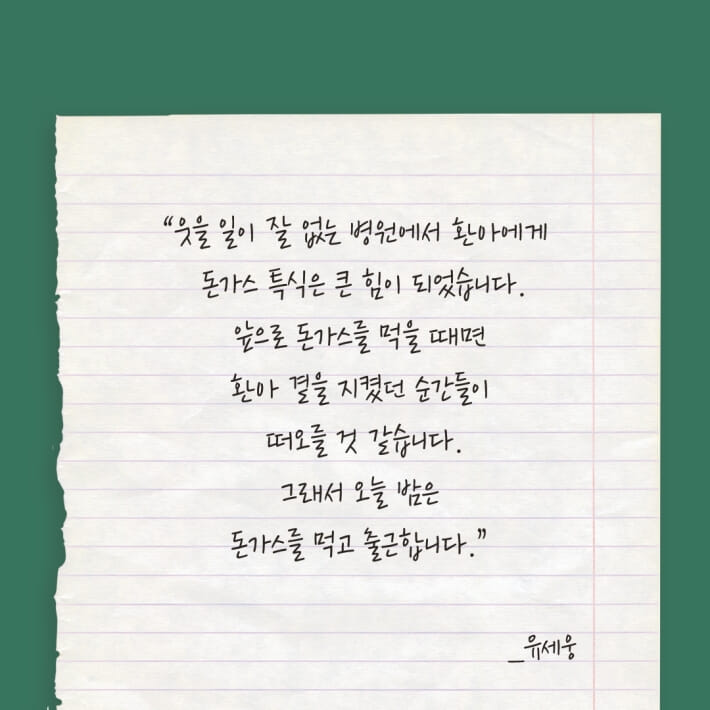 “웃을 일이 잘 없는 병원에서 환아에게
돈가스 특식은 큰 힘이 되었습니다.
앞으로 돈가스를 먹을 때면
환아 곁을 지켰던 순간들이
떠오를 것 같습니다.
그래서 오늘 밤은
돈가스를 먹고 출근합니다.”
_유세웅